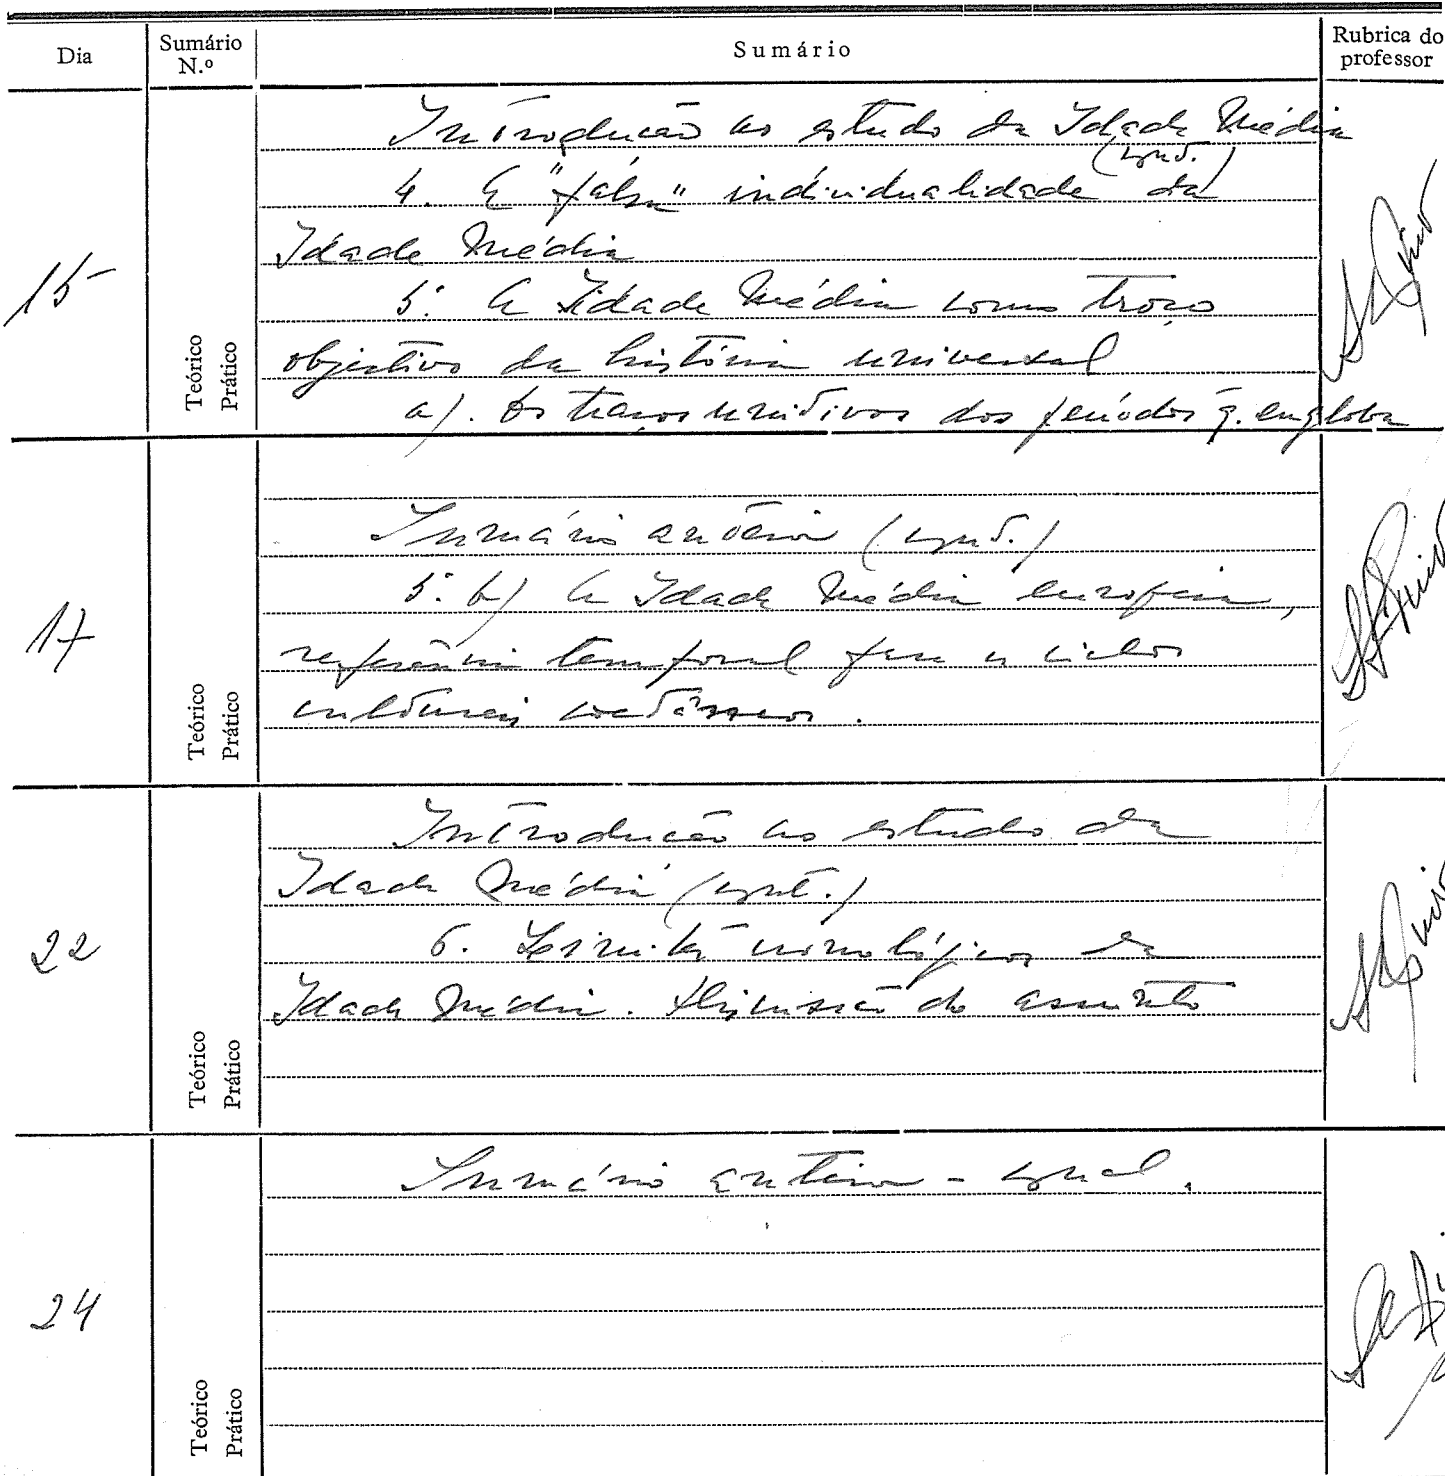 Dia
Sumário N.º
Sumário
Rubrica do professor
15
Teórico
Prático
Introdução ao estudo da Idade Média
(cont.)
4. A "falsa" individualidade da
Idade Média
5. A Idade Média como troço
objectivo da história universal
a). Os traços unitivos dos períodos q. engloba
17
Teórico
Prático
Sumário anterior (cont.)
5. b) A Idade Média europeia,
referência temporal para os ciclos
culturais coetâneos.
22
Teórico
Prático
Introdução ao estudo da
Idade Média (cont.)
6. Limites cronológicos da
Idade Média. Discussão do assunto
24
Teórico
Prático
Sumário anterior -